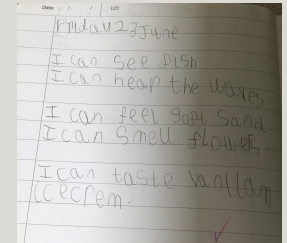 Date: LO:
Friday 23 June
I can see fish
I can hear the waves
I can feel soft sand
I can smell flowers.
I can taste vanllam
iccecrem.